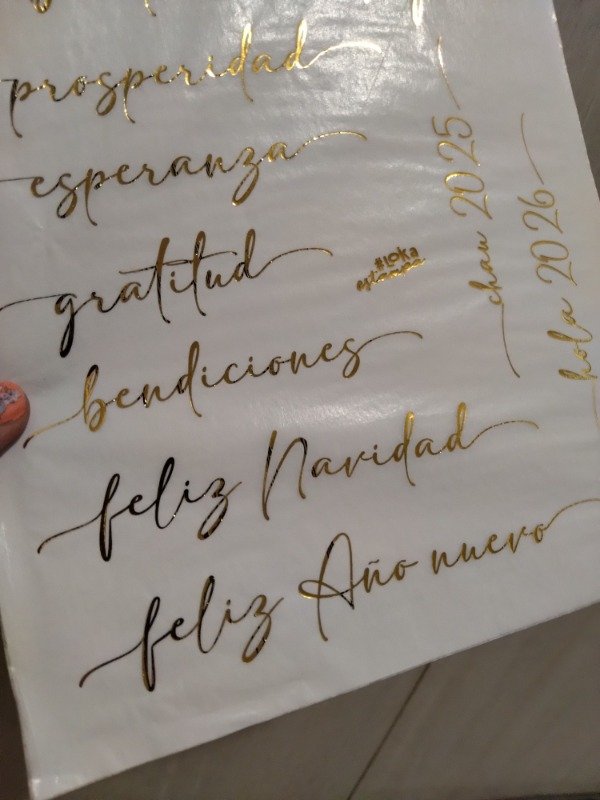 prosperidad
esperanza
gratitud
#LOKA
estampa
bendiciones
feliz Navidad
feliz Año nuevo
chau 2025
hola 2026